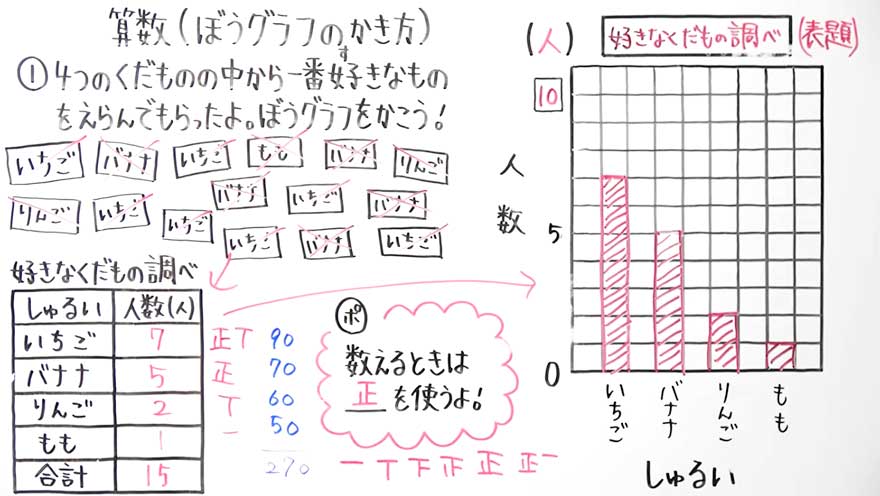 算数(ぼうグラフのかき方)
①4つのくだものの中から一番好きなもの
す
をえらんでもらったよ。ぼうグラフをかこう!
いちご バナナ いちご もも バナナ りんご
りんご いちご いちご バナナ いちご バナナ
いちご バナナ いちご
好きなくだもの調べ
しゅるい 人数(人)
いちご 7 正T 90
バナナ 5 正 70
りんご 2 T 60
もも 1 一 50
合計 15 270
ポ
数えるときは
正を使うよ!
一 T 下 正 正 正一
(人) 好きなくだもの調べ (表題)
10
人数
5
0
いちご
バナナ
りんご
もも
しゅるい